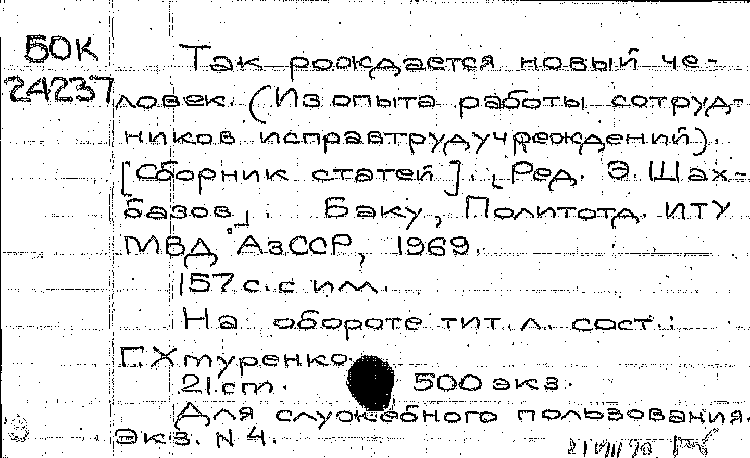 50К
24237
Так рождается новый че-
ловек. (Из опыта работы сотруд-
ников исправтрудучреждений).
[Сборник статей]. [Ред. Э. Шах-
базов]. Баку, Политотд. ИТУ
МВД АзССР, 1969.
157 с. с ил.
На обороте тит. л. сост.:
Г. Хтуренко.
21 см. 500 экз.
Для служебного пользования.
Экз. N 4.
21 VIII 70